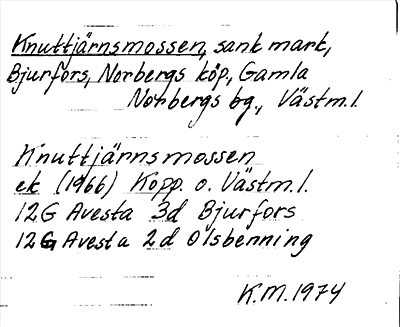 Knuttjärnsmossen, sank mark,
Bjurfors, Norbergs köp., Gamla
Norbergs bg., Västm.l.
Knuttjärnsmossen
ek (1966) Kopp. o. Västm.l.
12G Avesta 3d Bjurfors
12G Avesta 2d Olsbenning
K.M. 1974